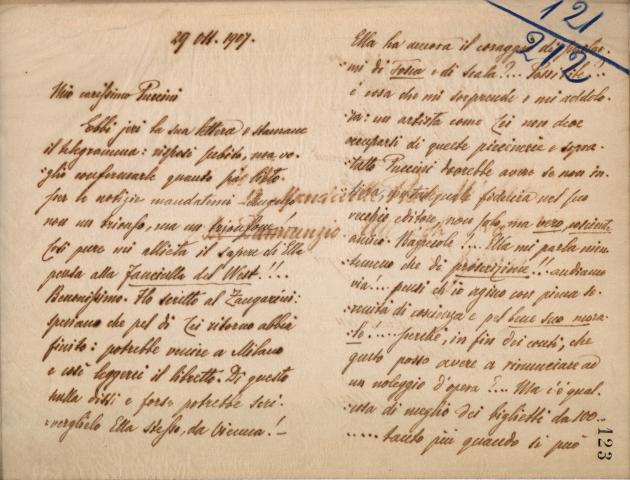 29 Ott. 1907.
Mio carissimo Puccini
Ebbi jeri la sua lettera e stamane
il telegramma: risposi subito, ma vo-
glio confermarle quanto già
per le notizie mandatemi
non un trionfo, ma un
Così pure mi allieta il sapere che Ella
pensa alla Fanciulla del West!!.
Benonissimo. Ho scritto al Zangarini:
speriamo che pel di Lei ritorno abbia
finito: potrebbe venire a Milano
e così leggerci il libretto. Di questo
nulla dissi e forse potrebbe scri-
verglielo Ella stesso, da Vienna!-
Ella ha ancora il coraggio di
mi di Tosca e di Scala?...
è cosa che mi sorprende e mi addolo-
ra: un artista come Lei non deve
occuparsi di queste piccinerie e sopra-
tutto Puccini dovrebbe avere se non in-
fiducia nel suo
vecchio editore, non solo, ma vero,
amico Bagnolo!... Ella mi parla
che di protezione!! andiamo
via... pensi ch'io agisco con piena se-
renità di coscienza e pel bene suo mora-
le!.... perchè, in fin dei conti, che
gusto posso avere a rinunciare ad
un noleggio d'opera?... Ma c'è qual-
cosa di meglio dei biglietti da 100..
..... tanto più quando si può
121
212
123